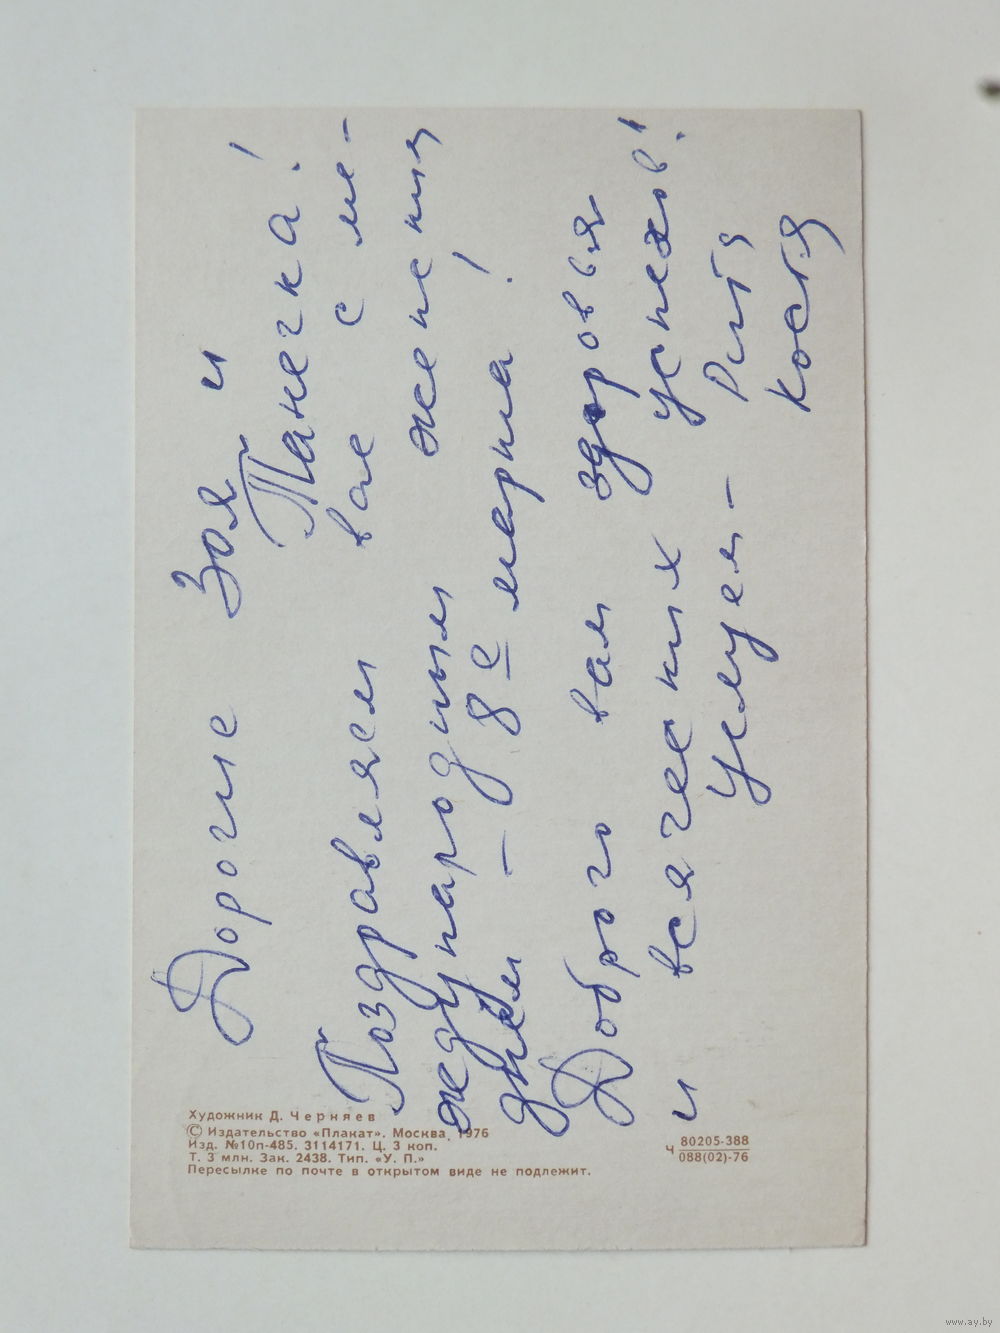 Дорогие Зоя и
Танечка!
Поздравляем вас с ме-
ждународным женским
днем - 8е марта!
Доброго вам здоровья
и всяческих успехов!
Целуем - Рита
Костя
Художник Д. Черняев
© Издательство «Плакат». Москва, 1976
Изд. №10п-485. 3114171. Ц. 3 коп.
Т. 3 млн. Зак. 2438. Тип. «У. П.»
Пересылке по почте в открытом виде не подлежит.
Ч 80205-388
088(02)-76
www.ay.by